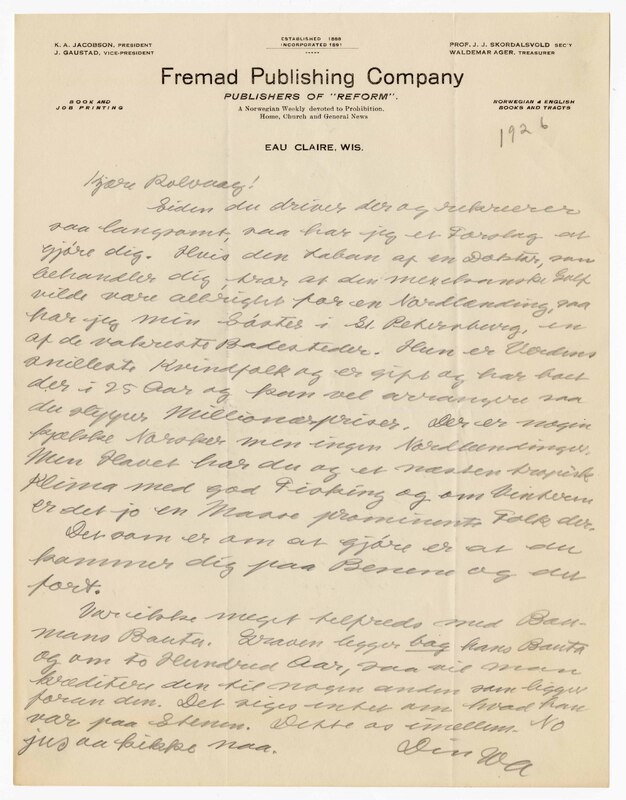 K. A. JACOBSON, PRESIDENT
J. GAUSTAD, VICE-PRESIDENT
ESTABLISHED 1888
INCORPORATED 1891
PROF. J. J. SKORDALSVOLD SEC'Y
WALDEMAR AGER, TREASURER
Fremad Publishing Company
PUBLISHERS OF "REFORM".
BOOK AND
JOB PRINTING
A Norwegian Weekly devoted to Prohibition.
Home, Church and General News
NORWEGIAN & ENGLISH
BOOKS AND TRACTS
EAU CLAIRE, WIS.
1926
Kjære Rolvaag!
Siden du driver der og rekreerer
saa langsomt, saa har jeg et Forslag at
gjöre dig. Hvis den Laban af en Doktor, som
behandler dig, tror at den mexikanske Golf
vilde være allright for en Nordlænding, saa
har jeg min Söster i St. Petersburg, en
af de vakreste Badesteder. Hun er Verdens
snilleste Kvindfolk og er gift og har boet
der i 25 Aar og kan vel arrangere saa
du slipper Millionærpriser. Der er nogen
Norsker men ingen Nordlændinger.
Men Havet har du og et næsten tropisk
Klima med god Fisking og om Vinteren
er det jo en Masse prominente Folk der.
Det som er om at gjöre er at du
kommer dig paa Benene og det
fort.
Var ikke meget tilfreds med Bau-
mans Bauta. Graven ligger bag hans Bauta
og om to Hundred Aar, saa vil man
kreditere den til nogen anden som ligger
foran den. Det siges intet om hvad han
var paa Stenen. Dette os imellem. No
jus aa kikke naa.
Din WA